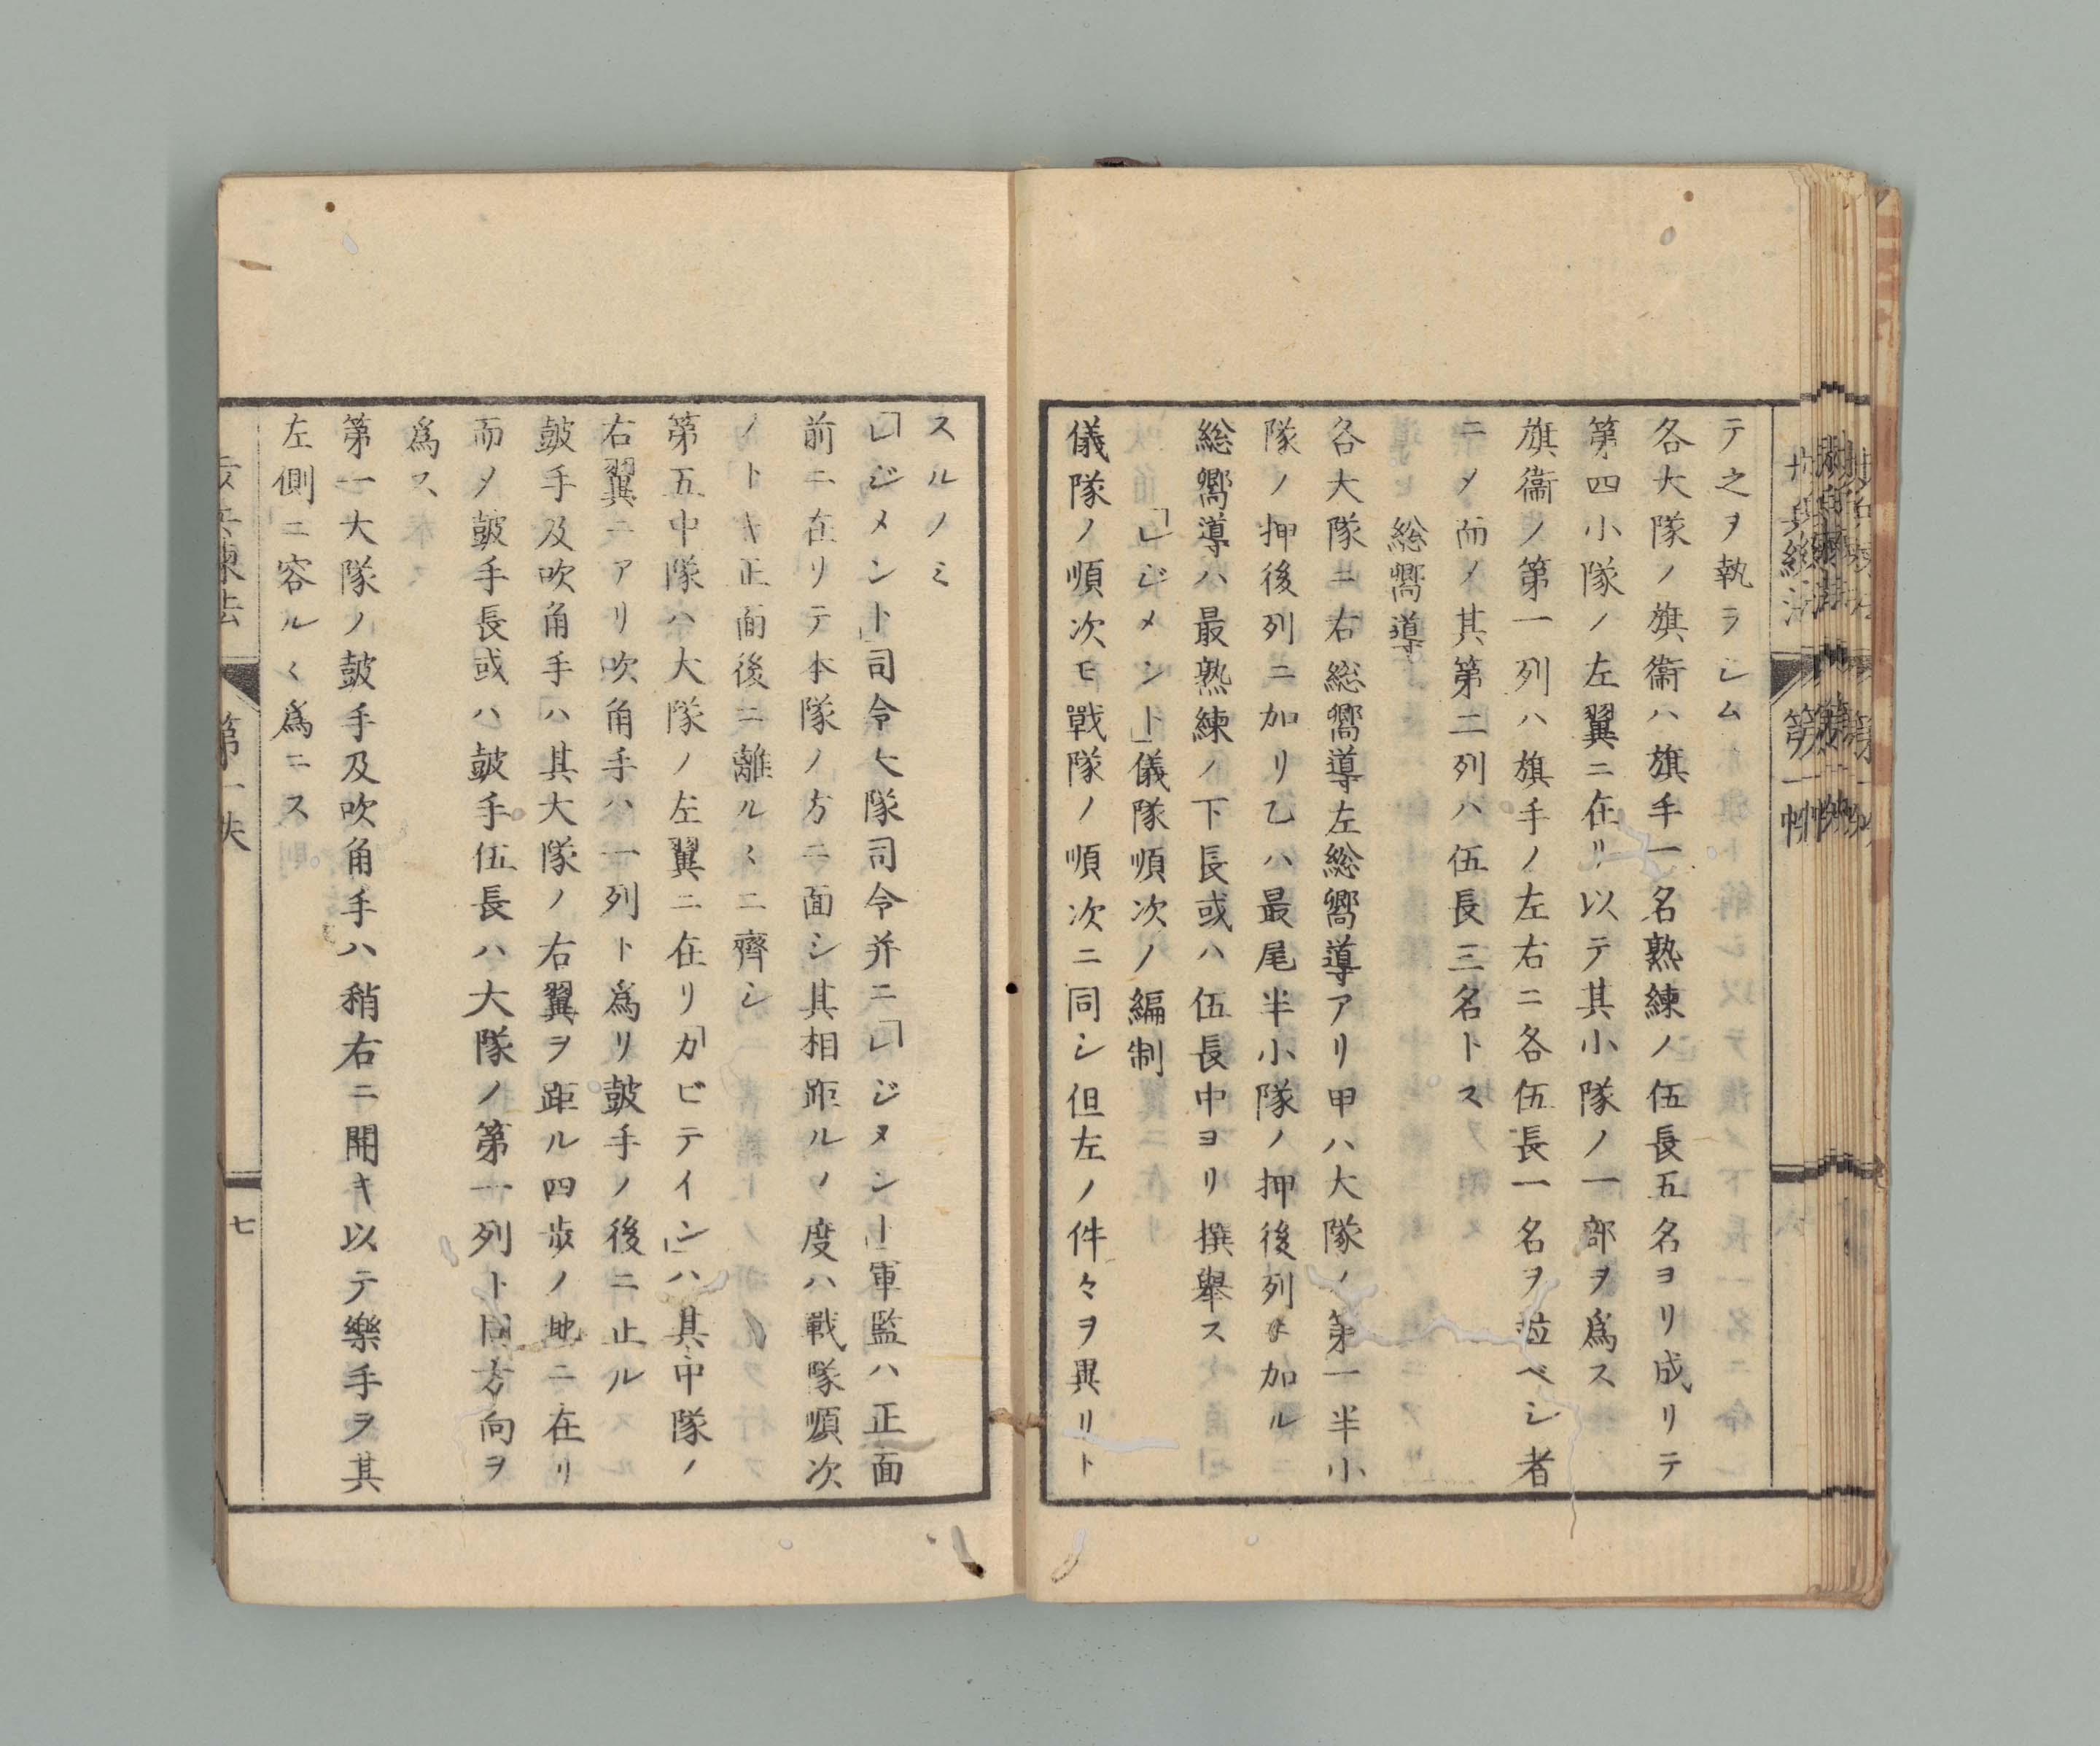 テ之ヲ執ラシム
各大隊ノ旗衞ハ旗手一名熟練ノ伍長五名ヨリ成リテ
第四小隊ノ左翼ニ在リ以テ其小隊ノ一部ヲ爲ス
旗衞ノ第一列ハ旗手ノ左右ニ各伍長一名ヲ竝ベシ者
ニメ而メ其第二列ハ伍長三名トス
総嚮導
各大隊ニ右総嚮導左総嚮導アリ甲ハ大隊ノ第一半小
隊ノ押後列ニ加リ乙ハ最尾半小隊ノ押後列ニ加ル
総嚮導ハ最熟練ノ下長或ハ伍長中ヨリ撰擧ス
「レジメント」儀隊順次ノ編制
儀隊ノ順次モ戰隊ノ順次ニ同シ但左ノ件々ヲ異リト
スルノミ
「レジメント」司令大隊司令并ニ「レジメント」軍監ハ正面
前ニ在リテ本隊ノ方ニ面シ其相距ルノ度ハ戰隊順次
ノトキ正面後ニ離ルヽニ齊シ
第五中隊ハ大隊ノ左翼ニ在リ「カピテイン」ハ其中隊ノ
右翼ニアリ吹角手ハ一列ト爲リ皷手ノ後ニ止ル
皷手及吹角手ハ其大隊ノ右翼ヲ距ル四歩ノ地ニ在リ
而メ皷手長或ハ皷手伍長ハ大隊ノ第一列ト同方向ヲ
爲ス
第一大隊ノ皷手及吹角手ハ稍右ニ開キ以テ樂手ヲ其
左側ニ容ルヽ爲ニス
第一帙
七